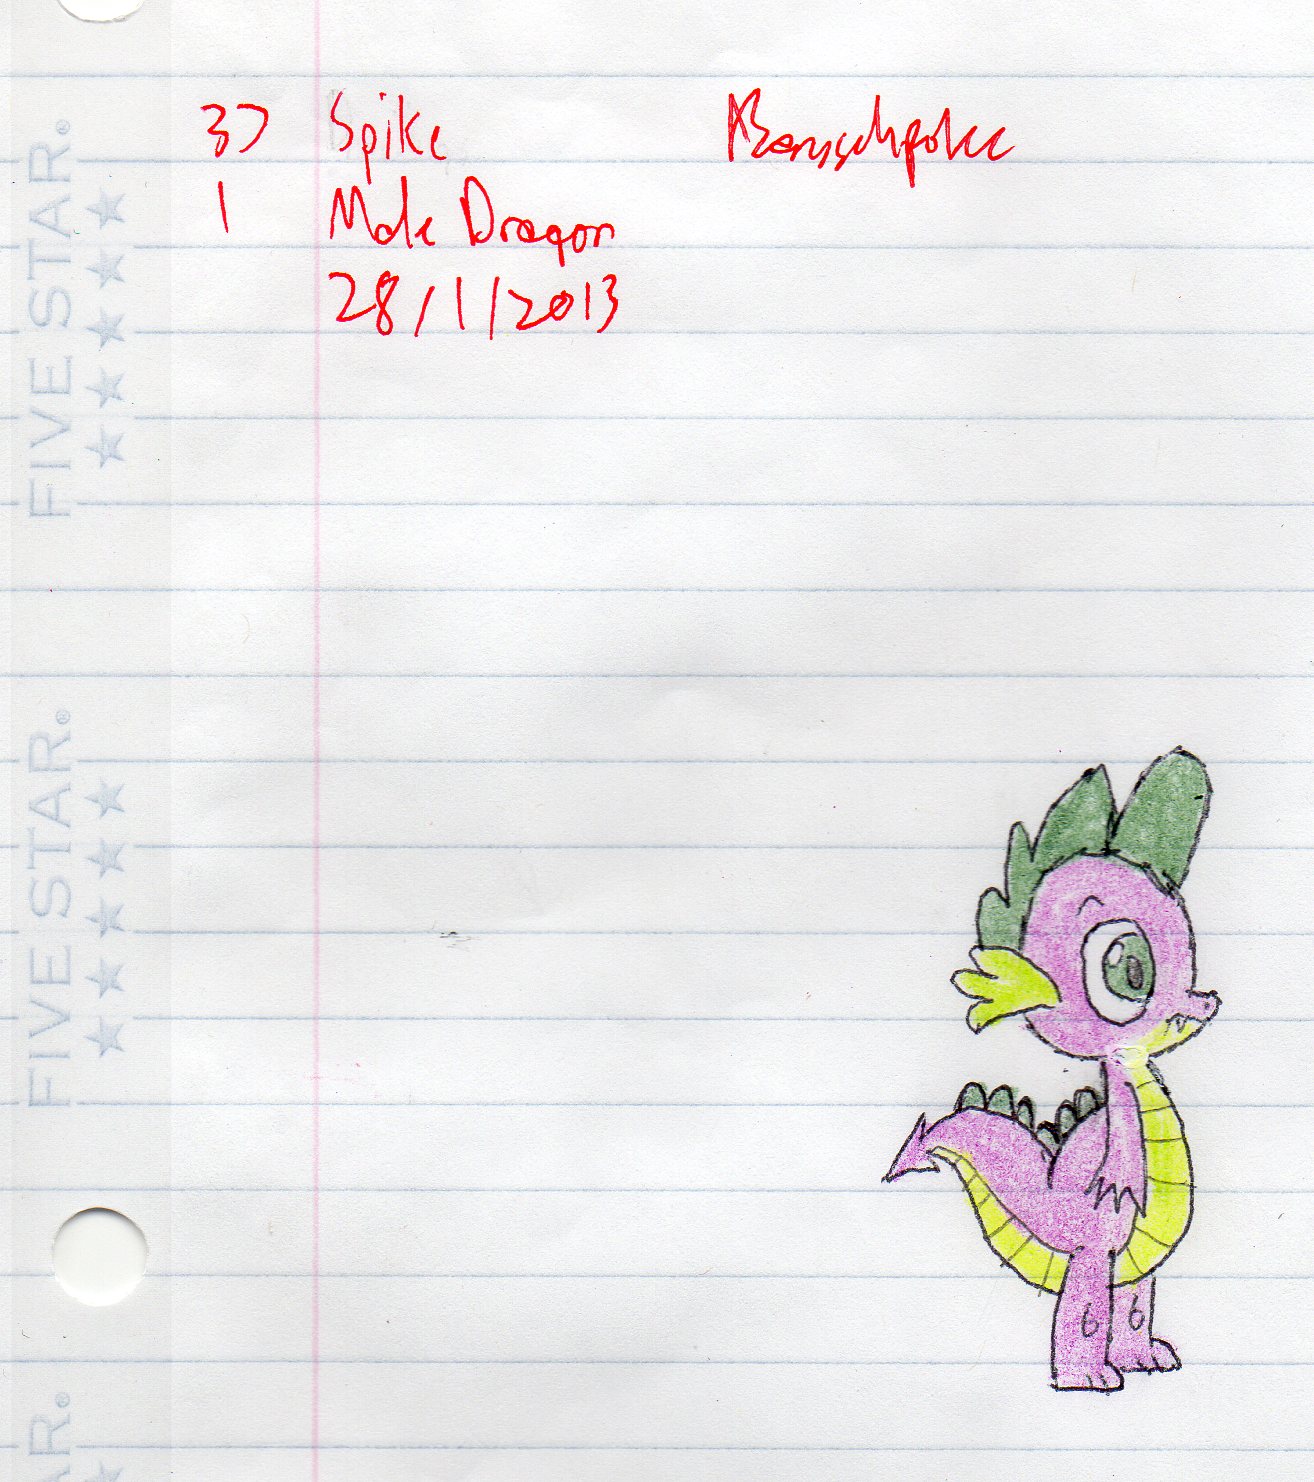 37 Spike
1 Male Dragon
28/1/2013
FIVE STAR®
FIVE STAR®
6 6
AR®